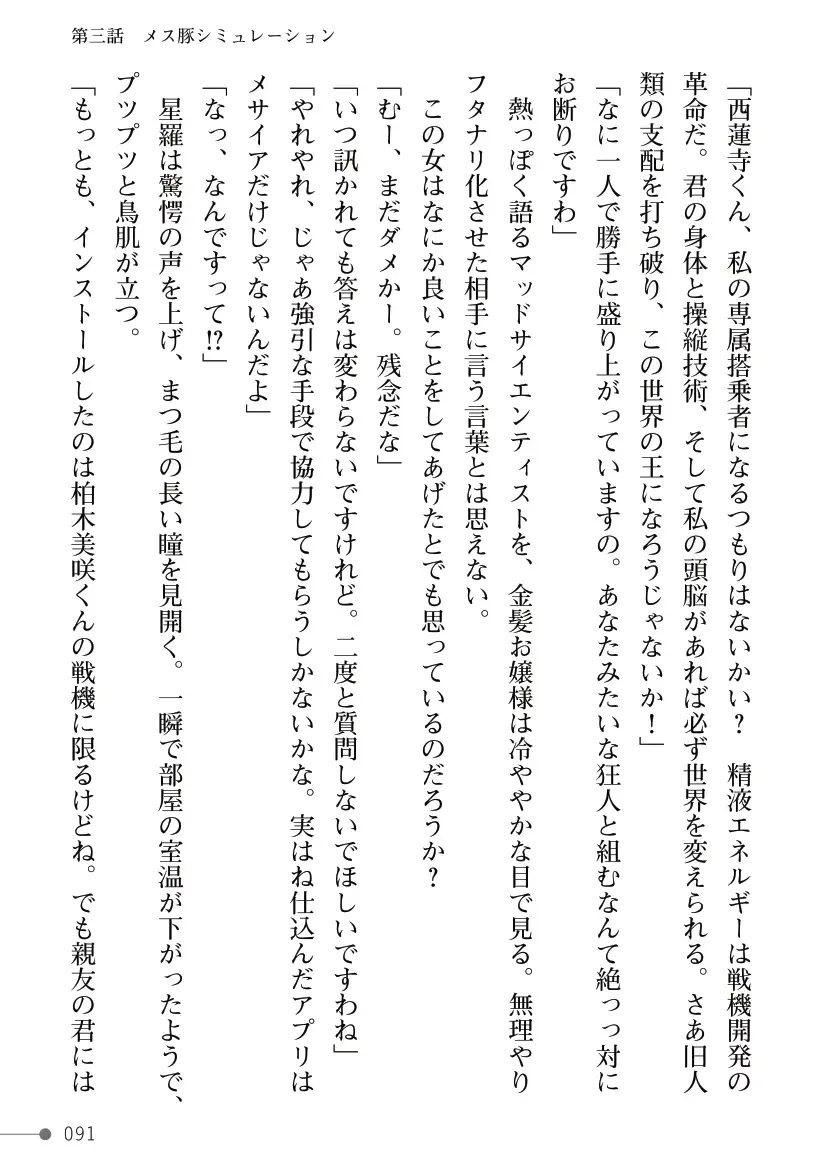 第三話　メス豚シミュレーション
「西蓮寺くん、私の専属搭乗者になるつもりはないかい？　精液エネルギーは戦機開発の
革命だ。君の身体と操縦技術、そして私の頭脳があれば必ず世界を変えられる。さあ旧人
類の支配を打ち破り、この世界の王になろうじゃないか！」
「なに一人で勝手に盛り上がっていますの。あなたみたいな狂人と組むなんて絶っっ対に
お断りですわ」
　熱っぽく語るマッドサイエンティストを、金髪お嬢様は冷ややかな目で見る。無理やり
フタナリ化させた相手に言う言葉とは思えない。
　この女はなにか良いことをしてあげたとでも思っているのだろうか？
「むー、まだダメかー。残念だな」
「いつ訊かれても答えは変わらないですけれど。二度と質問しないでほしいですわね」
「やれやれ、じゃあ強引な手段で協力してもらうしかないかな。実はね仕込んだアプリは
メサイアだけじゃないんだよ」
「なっ、なんですって!?」
　星羅は驚愕の声を上げ、まつ毛の長い瞳を見開く。一瞬で部屋の室温が下がったようで、
プツプツと鳥肌が立つ。
「もっとも、インストールしたのは柏木美咲くんの戦機に限るけどね。でも親友の君には
091